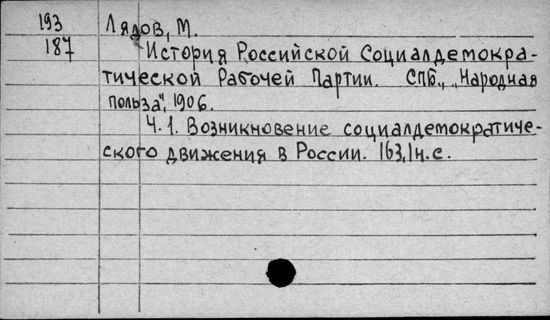 193 Лядов, М.
187 История Российской Социалдемокра-
тической Рабочей Партии. СПб., „Народная
польза", 1906.
Ч. 1. Возникновение социалдемократиче-
ского движения в России. 163,1н.с.